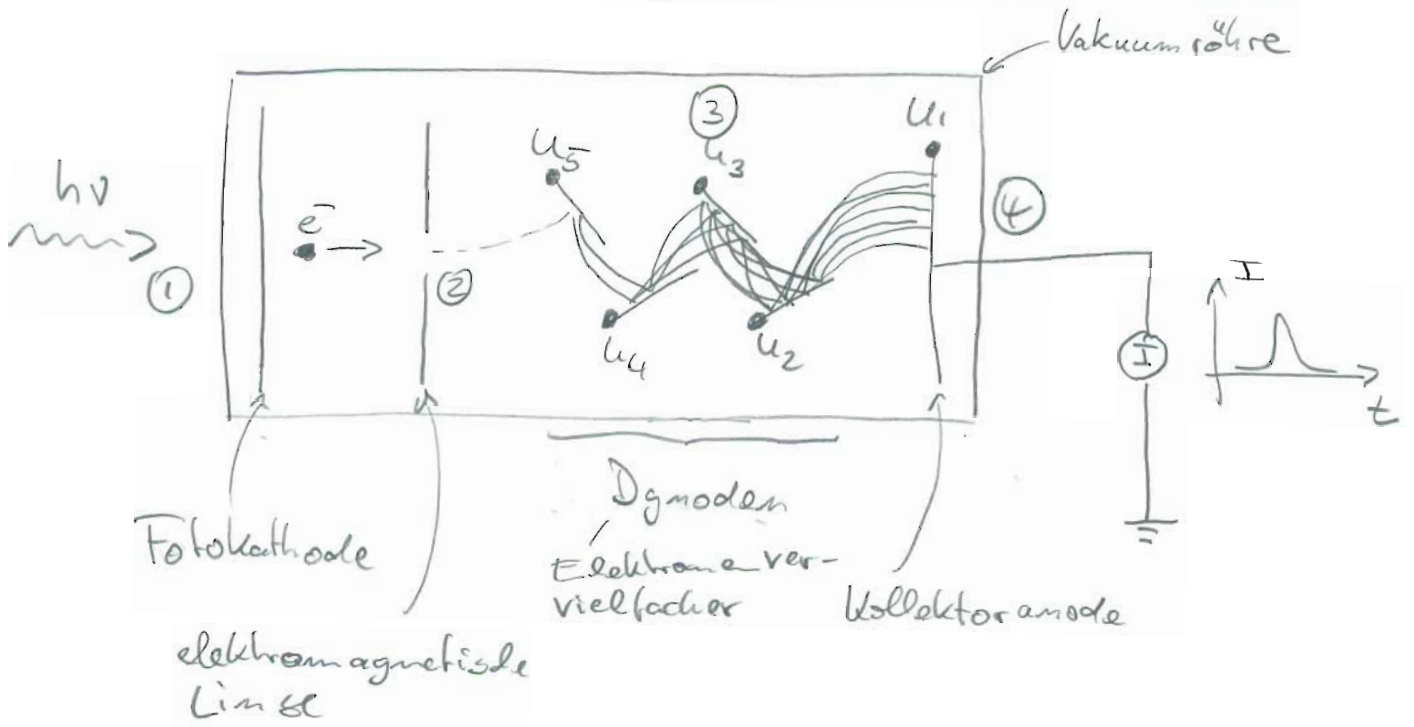 Vakuumröhre
hν
①
e⁻
②
U5
③
U3
U1
U4
U2
④
I
I
t
Fotokathode
elektromagnetische
Linse
Dynoden
Elektronenver-
vielfacher
Kollektoranode